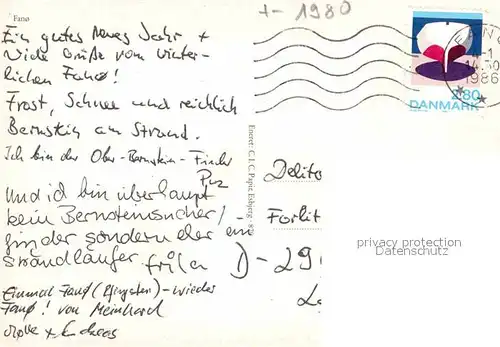 Fanø
+ - 1980
Ein gutes Neues Jahr +
viele Grüße vom winter-
lichen Fanø!
Frost, Schnee und reichlich
Bernstein am Strand.
Ich bin der Ober-Bernstein-Finder
Und ich bin überhaupt
kein Bernsteinsucher/-
finder sondern eher ein
Strandläufer
Einmal Fanø (Pfingsten) - wieder
Fanø! von Meinhard
+ Andreas
Eneret: C.I.C. Papir, Esbjerg - 859
FANØ
14.30
1986
280
DANMARK
Delito
Forlit
D - 29
privacy protection
Datenschutz